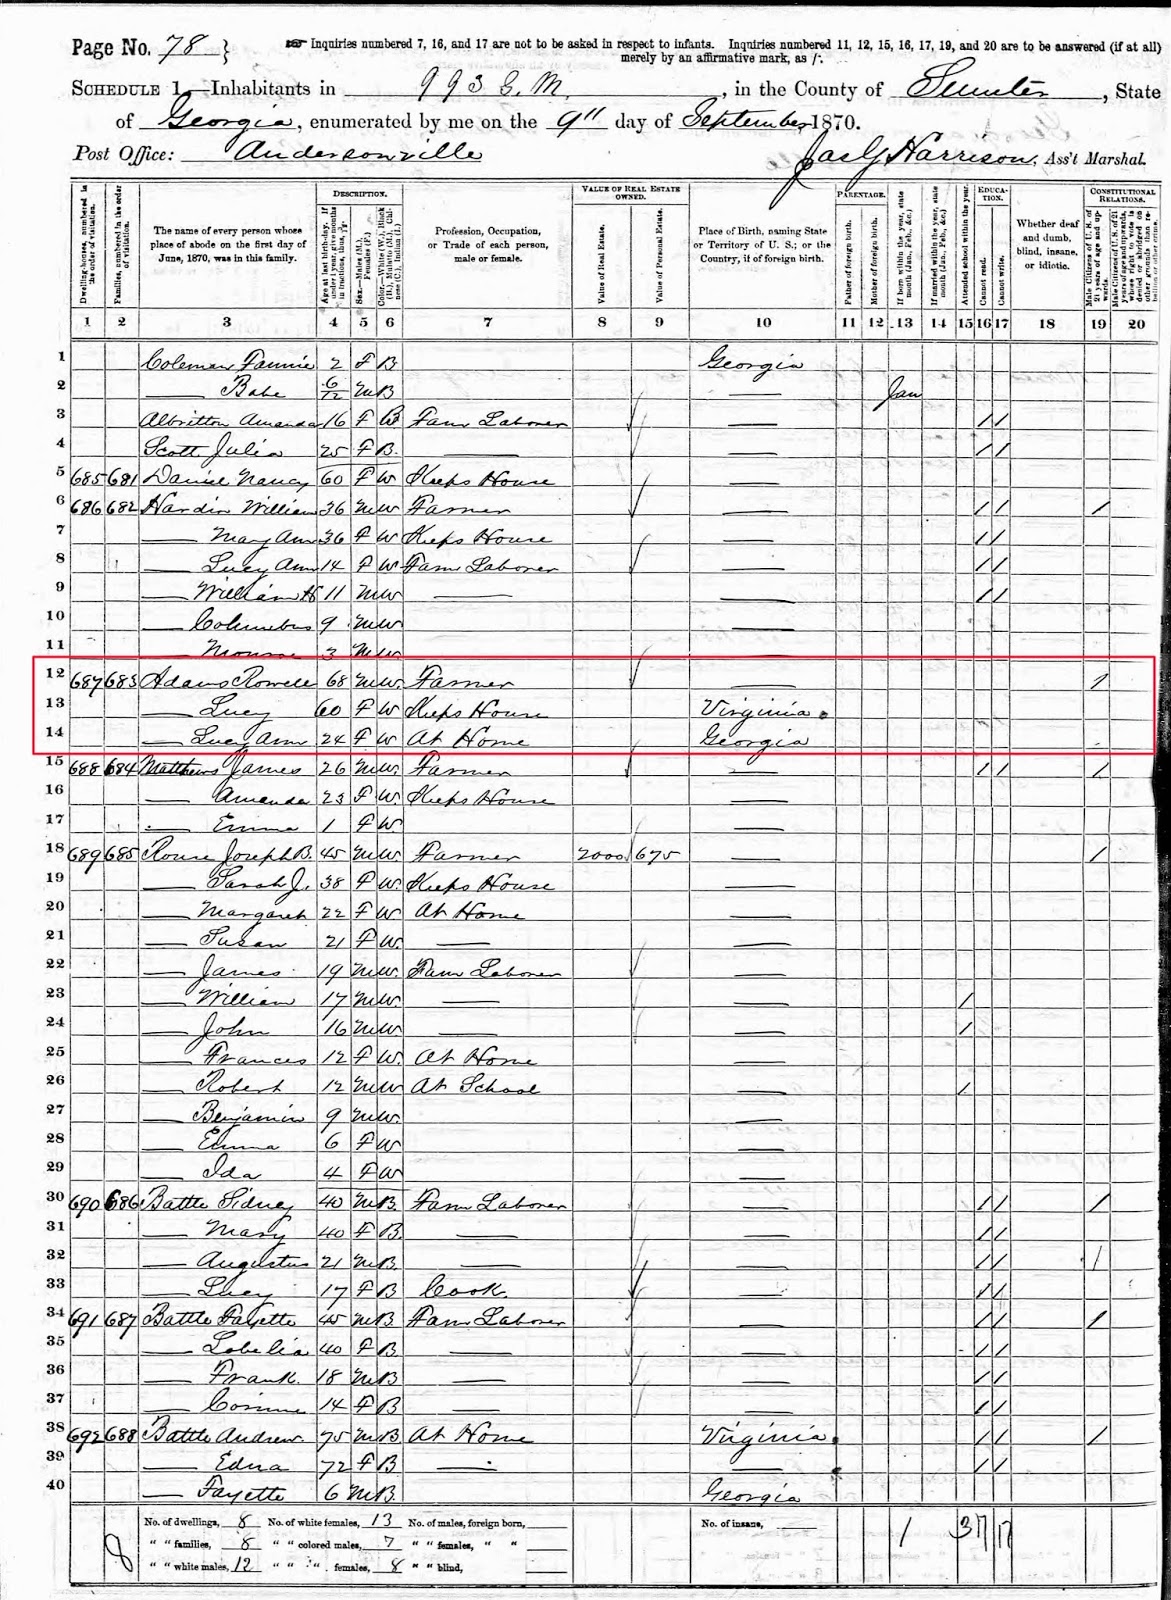 Page No. 78 } ☞ Inquiries numbered 7, 16, and 17 are not to be asked in respect to infants. Inquiries numbered 11, 12, 15, 16, 17, 19, and 20 are to be answered (if at all)
merely by an affirmative mark, as /.
SCHEDULE 1.—Inhabitants in 993 G. M., in the County of Sumter, State
of Georgia, enumerated by me on the 9" day of September, 1870.
Post Office: Andersonville Jas G Harrison, Ass't Marshal.
DESCRIPTION. VALUE OF REAL ESTATE OWNED. PARENTAGE. EDUCATION. CONSTITUTIONAL RELATIONS.
Dwelling-houses, numbered in the order of visitation.
Families, numbered in the order of visitation.
The name of every person whose place of abode on the first day of June, 1870, was in this family.
Age at last birth-day. If under 1 year, give months in fractions, thus, 3/12
Sex.—Males (M.), Females (F.)
Color.—White (W.), Black (B.), Mulatto (M.), Chinese (C.), Indian (I.)
Profession, Occupation, or Trade of each person, male or female.
Value of Real Estate.
Value of Personal Estate.
Place of Birth, naming State or Territory of U. S.; or the Country, if of foreign birth.
Father of foreign birth.
Mother of foreign birth.
If born within the year, state month (Jan., Feb., &c.)
If married within the year, state month (Jan., Feb., &c.)
Attended school within the year.
Cannot read.
Cannot write.
Whether deaf and dumb, blind, insane, or idiotic.
Male Citizens of U. S. of 21 years of age and upwards.
Male Citizens of U. S. of 21 years of age and upwards, whose right to vote is denied or abridged on other grounds than rebellion or other crime.
1 2 3 4 5 6 7 8 9 10 11 12 13 14 15 16 17 18 19 20
1 Coleman Fannie 2 F B Georgia
2 — Babe 6/12 M B — Jan
3 Albritton Amanda 16 F B Farm Laborer — / /
4 Scott Julia 25 F B. — — / /
5 685 681 Daniel Nancy 60 F W Keeps House —
6 686 682 Hardin William 36 M W Farmer — / / /
7 — Mary Ann 36 F W Keeps House — / /
8 — Lucy Ann 14 F W Farm Laborer — / /
9 — William H 11 M W — — / /
10 — Columbus 9 M W —
11 — Monroe 3 M W —
12 687 683 Adams Rowell 68 M W. Farmer — /
13 — Lucy 60 F W Keeps House Virginia
14 — Lucy Ann 24 F W At Home Georgia
15 688 684 Matthews James 26 M W. Farmer — / / /
16 — Amanda 23 F W. Keeps House —
17 — Emma 1 F W —
18 689 685 Rouse Joseph B. 45 M W. Farmer 2000 675 — /
19 — Sarah J. 38 F W. Keeps House —
20 — Margaret 22 F W At Home —
21 — Susan 21 F W. — —
22 — James 19 M W. Farm Laborer —
23 — William 17 M W. — — /
24 — John 16 M W — — /
25 — Frances 12 F W. At Home —
26 — Robert 12 M W At School — /
27 — Benjamin 9 M W. —
28 — Emma 6 F W —
29 — Ida 4 F W —
30 690 686 Battle Sidney 40 M B. Farm Laborer — / / /
31 — Mary 40 F B. — — / /
32 — Augustus 21 M B. — — / / /
33 — Lucy 17 F B Cook. — / /
34 691 687 Battle Fayette 45 M B. Farm Laborer — / / /
35 — Lobelia 40 F B. — — / /
36 — Frank. 18 M B — — / /
37 — Corinne 14 F B — — / /
38 692 688 Battle Andrew. 75 M B At Home Virginia. / / /
39 — Edna 72 F B. — — / /
40 — Fayette 6 M B. Georgia
No. of dwellings, 8 No. of white females, 13 No. of males, foreign born, No. of insane,
" " families, 8 " " colored males, 7 " " females, " "
" " white males, 12 " " " females, 8 " " blind,
8 1 3 17 17